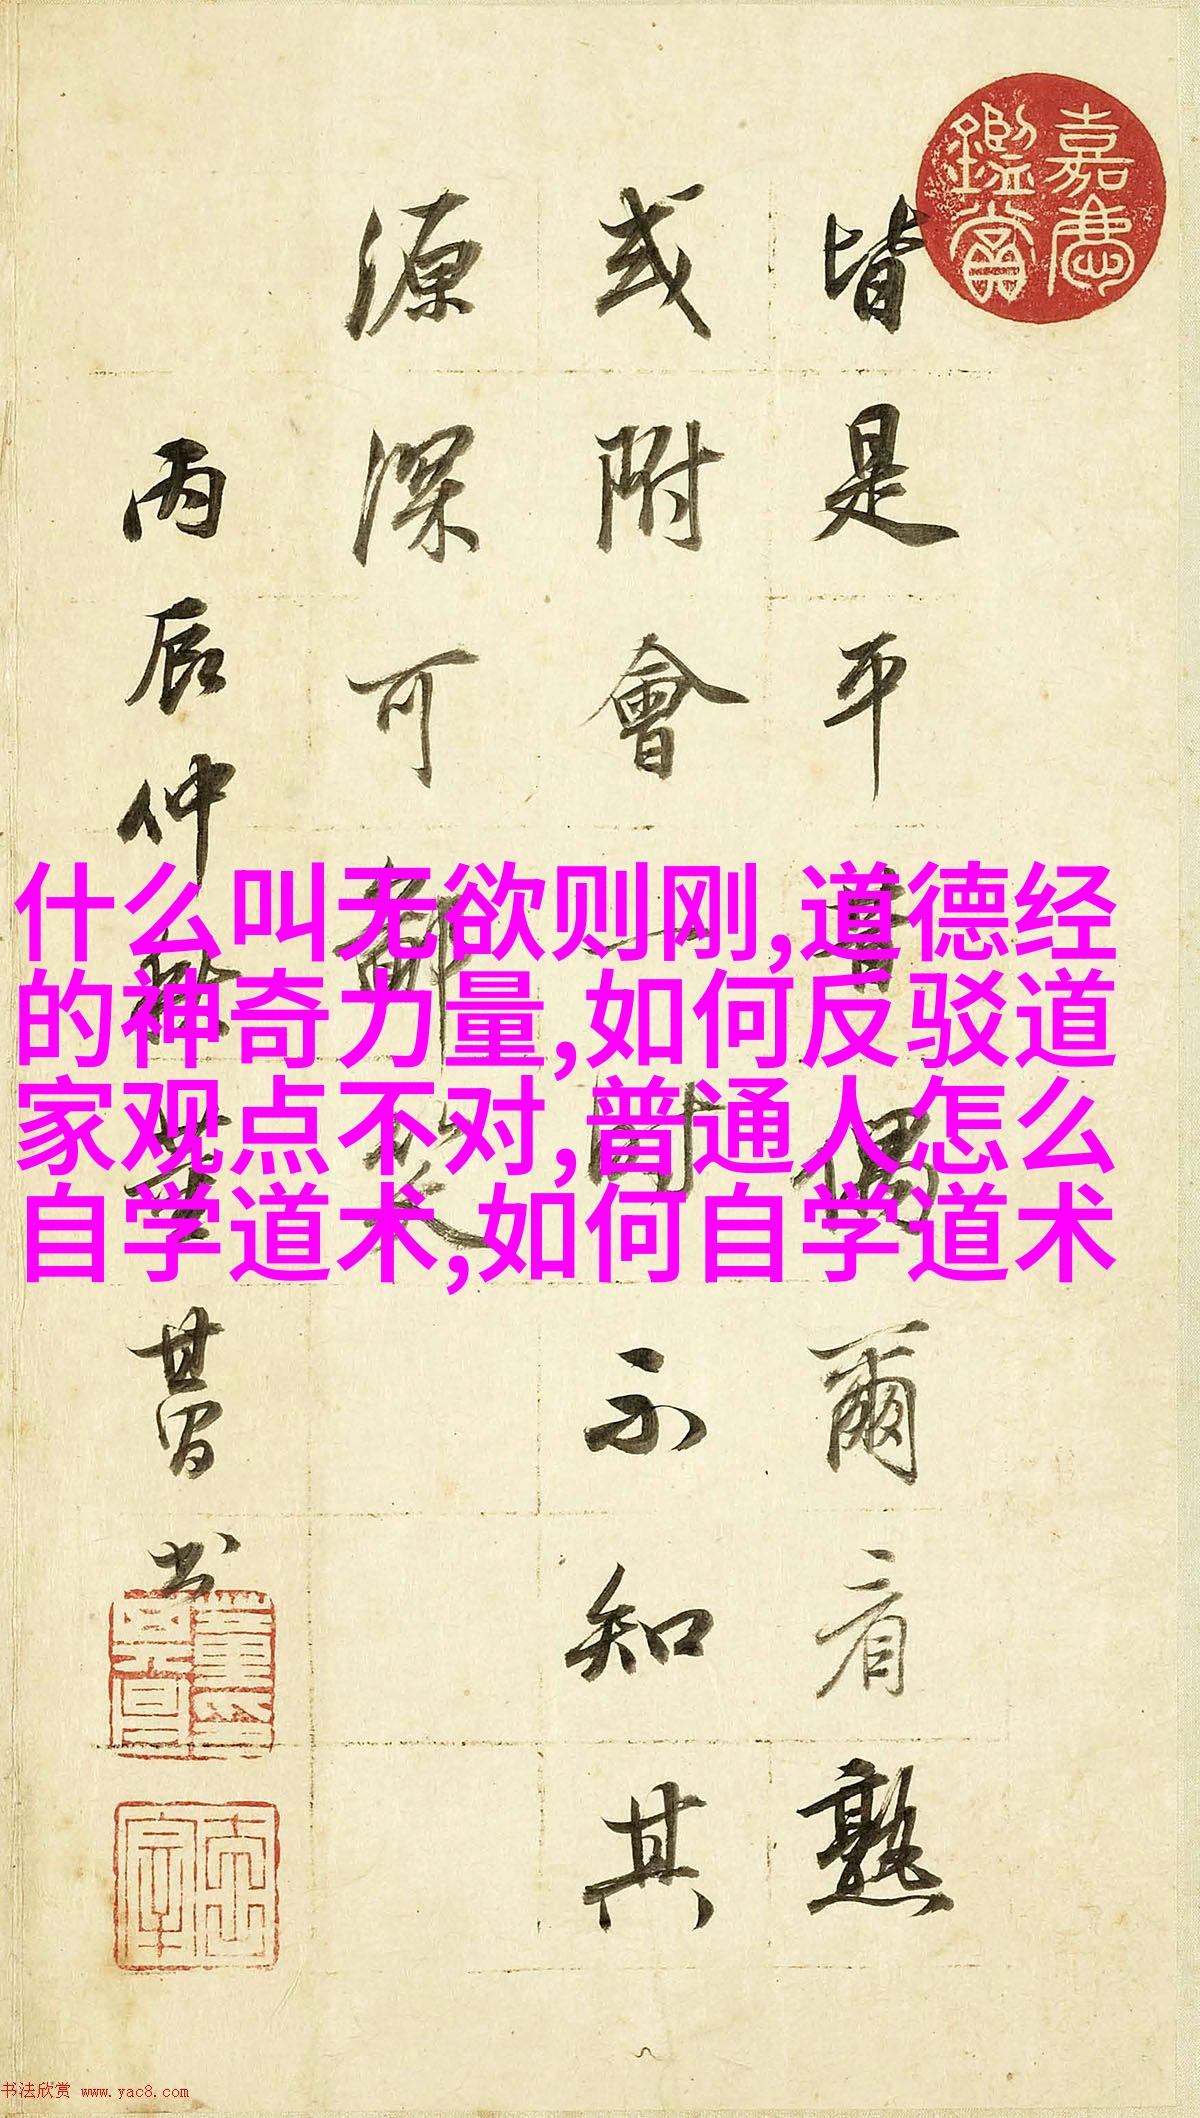 嘉慶
鑑賞
皆是平昔偶爾看熟
或附會一時不知其
源深可鄙笑
丙辰仲
其昌书
什么叫无欲则刚,道德经
的神奇力量,如何反驳道
家观点不对,普通人怎么
自学道术,如何自学道术
书法欣赏 www.yac8.com